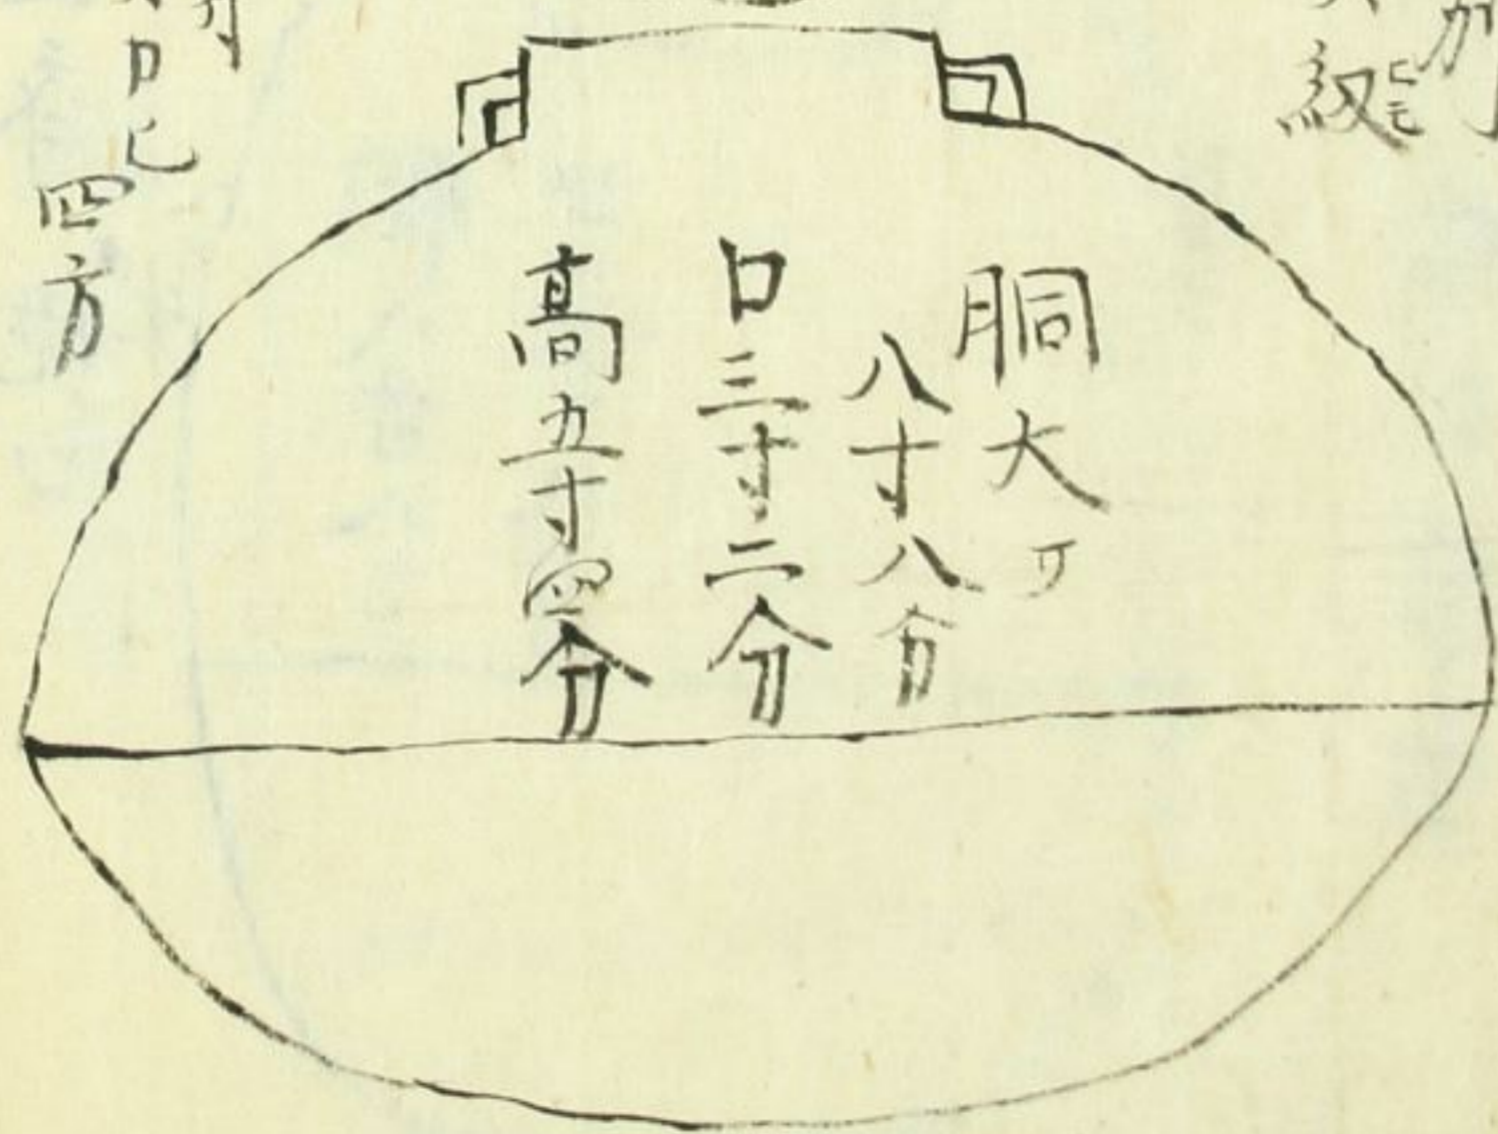 紐ヒモ
胴大サ
八寸八分
口三寸二分
高五寸四分
四方